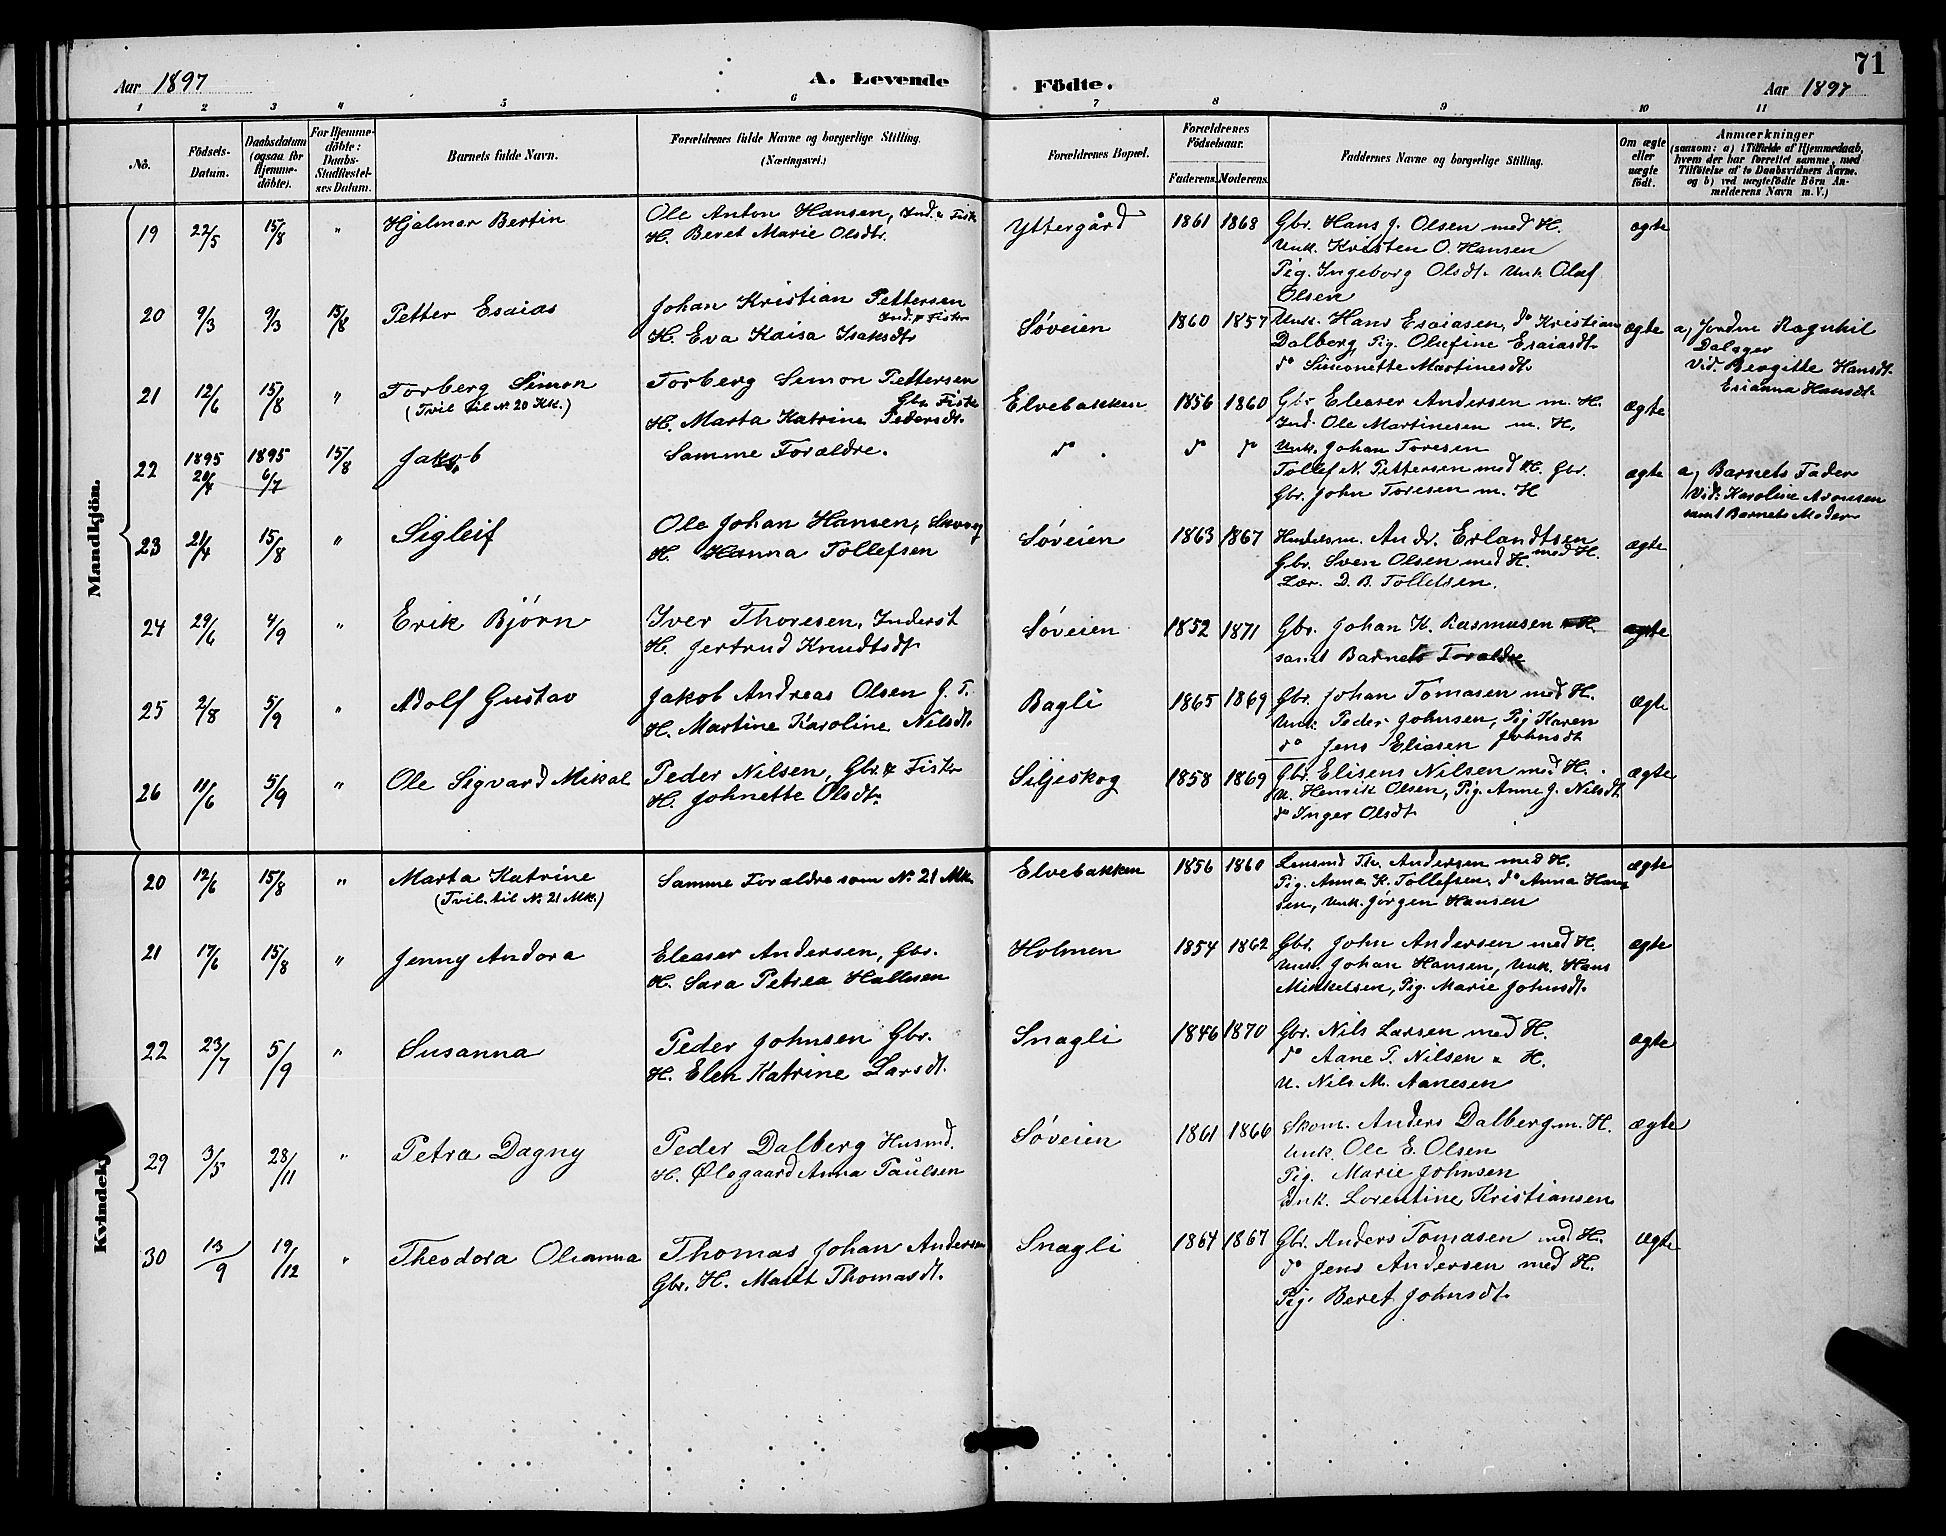 71
Aar 1897
A. Levende
Födte.
Aar 1897
1 2 3 4 5 6 7 8 9 10 11
No.
Födsels-
Datum.
Daabsdatum
(ogsaa for
Hjemme-
döbte).
For Hjemme-
döbte:
Daabs-
Stadfæstel-
ses Datum.
Barnets fulde Navn.
Forældrenes fulde Navne og borgerlige Stilling.
(Næringsvei.)
Forældrenes Bopæl.
Forældrenes
Födselsaar.
Faderens. Moderens.
Faddernes Navne og borgerlige Stilling.
Om ægte
eller
uægte
födt.
Anmærkninger
(saasom: a) i Tilfælde af Hjemmedaab,
hvem der har forrettet samme, med
Tilföielse af to Daabsvidners Navne.
og b) ved uægtefödte Börn An-
melderens Navn m. V.)
Mandkjön.
19 22/5 15/8 " Hjalmar Bertin
Ole Anton Hansen, Ind. & Fisk
H. Beret Marie Olsdtr.
Yttergård 1861 1868
Gbr. Hans J. Olsen med H.
Unk. Kristen O. Hansen
Pig. Ingeborg Olsdt. Unk. Olaf
Olsen
ægte
20 9/3 9/3 15/8 Petter Esaias
Johan Kristian Pettersen
Ind. & Fisker
H. Eva Kaisa Isaksdtr
Søveien 1860 1857
Unk. Hans Esaiasen, do Kristian
Dalberg, Pig. Olefine Esaiasdt.
do Simonette Martinesdt.
ægte
a, Jordm Ragnhil
Dalager
Vid. Bergitte Hansdt.
Esianna Hansdt.
21 12/6 15/8 " Torberg Simon
(Tvil. til No 20 Kk.)
Torberg Simon Pettersen
Gbr. Fisk
H. Marta Katrine Pedersdt.
Elvebakken 1856 1860
Gbr Eleaser Andersen m. H.
Ind. Ole Martinesen m. H.
Unk. Johan Toresen
ægte
22 1895 20/4 1895 6/7 15/8 Jakob
Samme Forældre.
do do do
Tollef N. Pettersen med H. Gbr.
Gbr. John Toresen m. H
ægte
a, Barnets Fader
Vid: Karoline Aronsen
samt Barnets Moder
23 21/4 15/8 " Sigleif
Ole Johan Hansen,
H. Hanna Tollefsen
Søveien 1863 1867
Andr. Erlandtsen
med H.
Gbr. Sven Olsen med H.
Lær. D. B. Tollefsen.
ægte
24 29/6 4/9 " Erik Bjørn
Iver Thoresen, Inderst
H. Jertrud Knudtsdt.
Søveien 1852 1871
Gbr. Johan K. Rasmusen & H.
samt Barnets Forældre
ægte
25 2/8 5/9 " Adolf Gustav
Jakob Andreas Olsen J. F.
H. Martine Karoline Nilsdt.
Bagli 1865 1869
Gbr. Johan Tomasen med H.
Unk. Peder Johnsen, Pig Karen
Johnsdt
do Jens Eliasen
ægte
26 11/6 5/9 " Ole Sigvard Mikal
Peder Nilsen, Gbr. & Fisker
H. Johnette Olsdt.
Siljeskog 1858 1869
Gbr. Elisens Nilsen med H.
U. Henrik Olsen, Pig. Anne J. Nilsdt.
do Inger Olsdt
ægte
Kvindekj
20 12/6 15/8 " Marta Katrine
(Tvil. til No 21 Mk.)
Samme Forældre som No 21 Mk.
Elvebakken 1856 1860
Lensmd Th. Andersen med H.
Pig. Anna K. Tollefsen, do Anna Han
sen, Unk. Jørgen Hansen
ægte
21 17/6 15/8 " Jenny Andora
Eleaser Andersen, Gbr.
H. Sara Petrea Hallesen
Holmen 1854 1862
Gbr. John Andersen med H.
Unk. Johan Hansen, Unk. Hans
Mikkelsen, Pig. Marie Johnsdt.
ægte
22 23/7 5/9 " Susanna
Peder Johnsen Gbr.
H. Elen Katrine Larsdt.
Snagli 1846 1870
Gbr. Nils Larsen med H.
do Aane P. Nilsen & H.
U. Nils M. Aanesen
ægte
29 3/5 28/11 " Petra Dagny
Peder Dalberg Husmd.
H. Ølegaard Anna Paulsen
Søveien 1861 1866
Skom. Anders Dalberg m. H.
Unk. Ole E. Olsen
Pig. Marie Johnsen
Enk. Lorentine Kristiansen
ægte
30 13/9 19/12 " Theodora Oleanna
Thomas Johan Andersen
Gbr. H. Marit Thomasdt.
Snagli 1864 1867
Gbr. Anders Tomasen med H.
do Jens Andersen med H.
Pig. Beret Johnsdt.
ægte